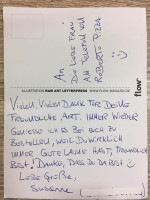 An
Die liebe Frau
am Telefon von
Roberto Pizza
ILLUSTRATION RAW ART LETTERPRESS
flow
Vielen, vielen Dank für Deine
freundliche Art. Immer wieder
genieße ich es bei euch zu
bestellen, weil Du wirklich
immer gute Laune hast, freundlich
bist! Danke, dass Du da bist
Liebe Grüße,
Susanne